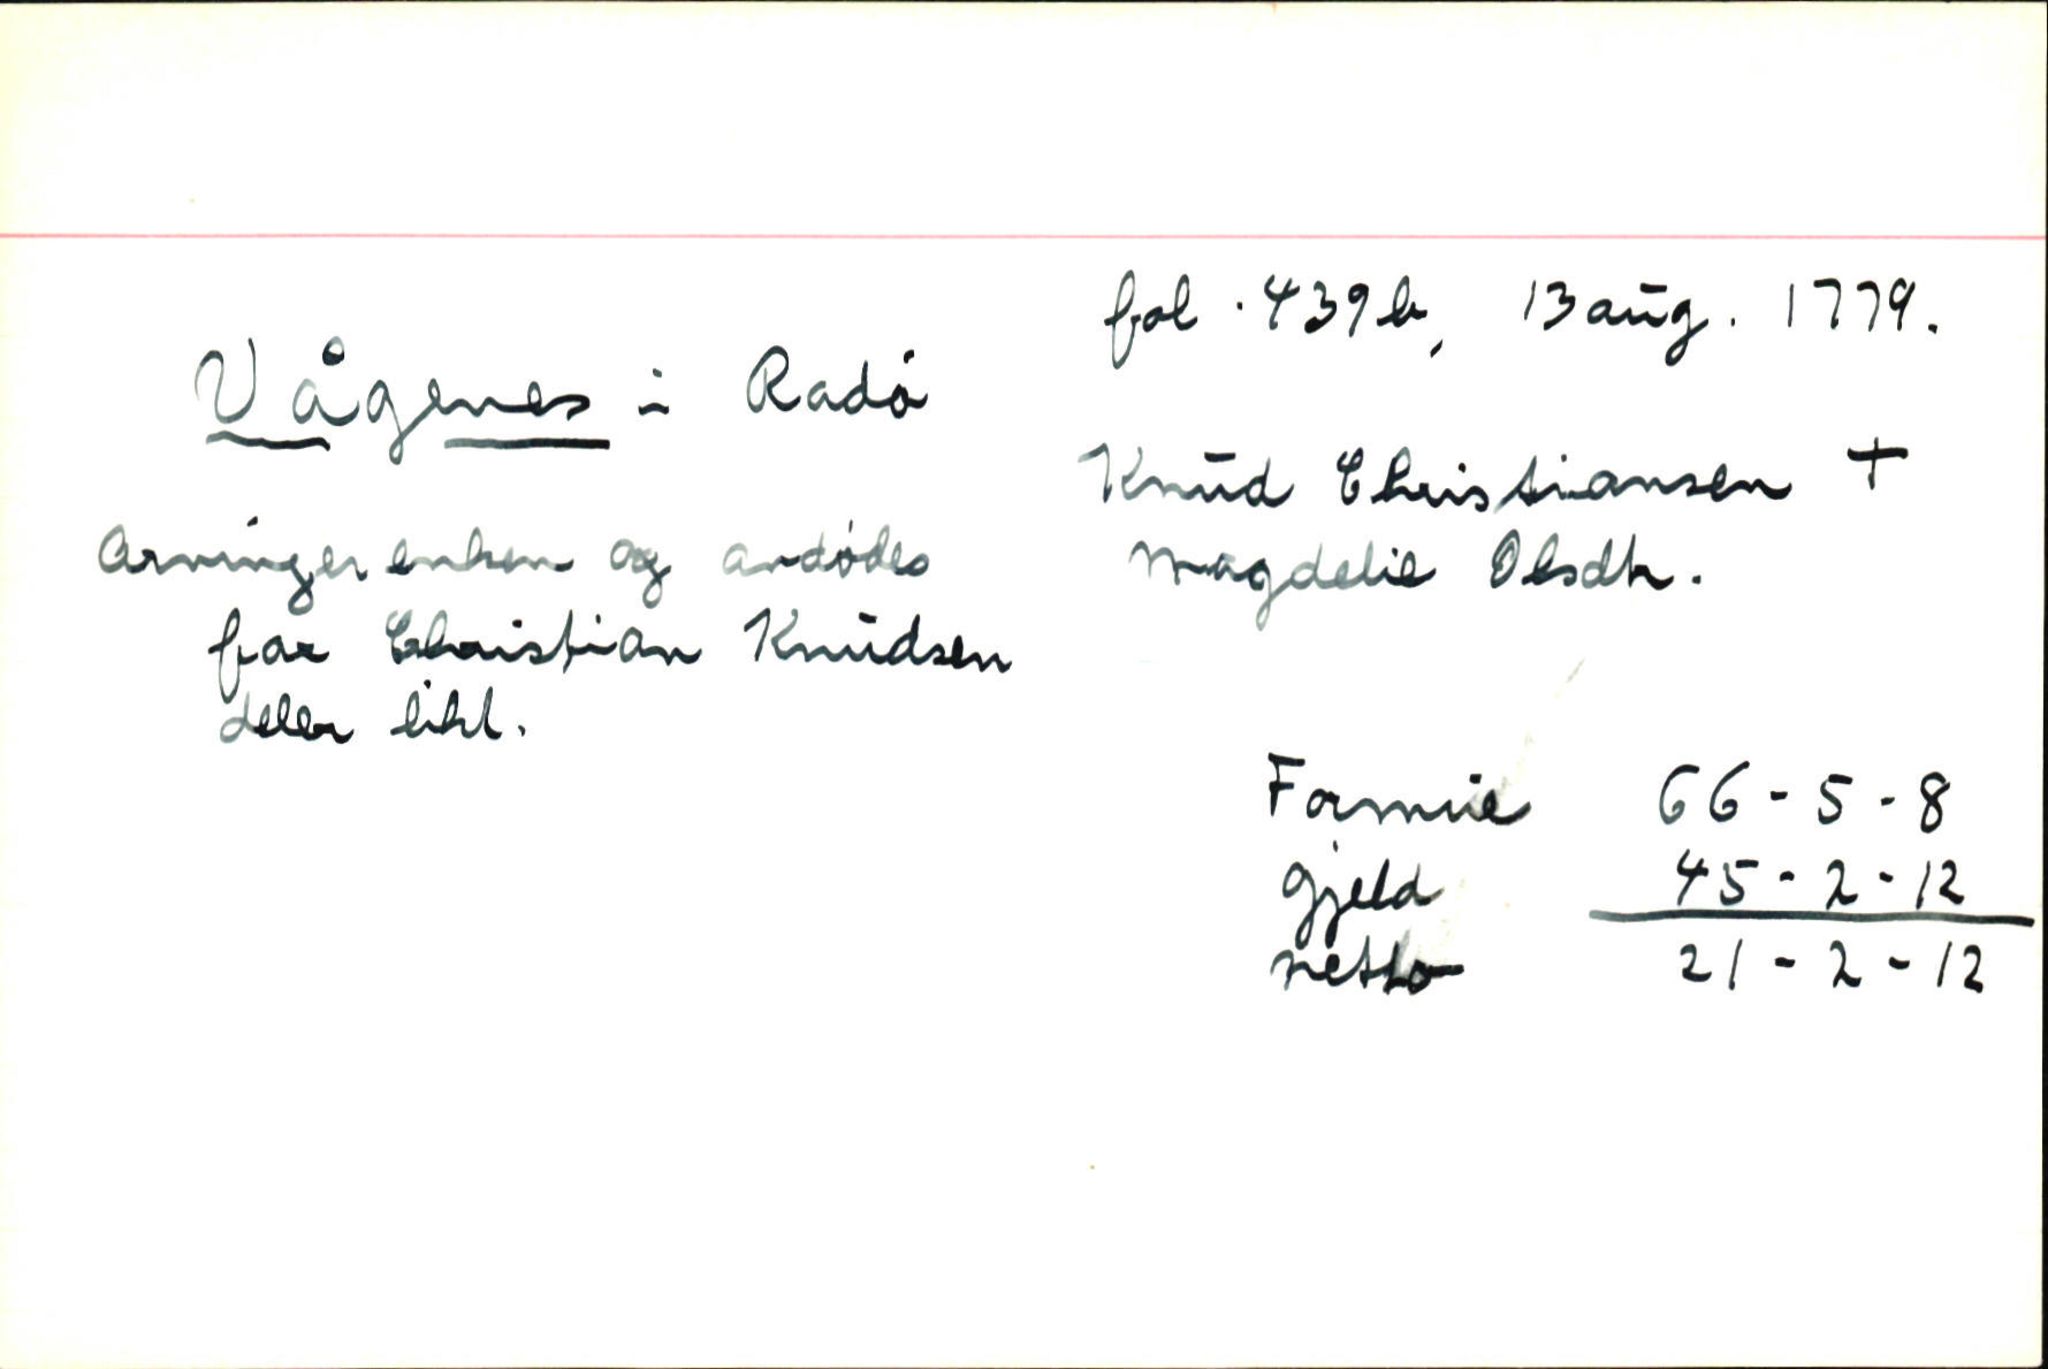 fol. 439b, 13 aug. 1779.
Vågenes i Radö
Knud Christiansen +
Magdelie Olsdtr.
Arvinger enken og avdødes
far Christian Knudsen
deler likt.
Formue 66-5-8
gjeld 45-2-12
netto 21-2-12